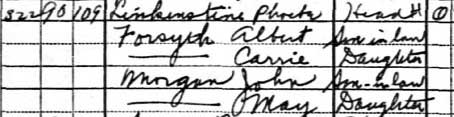 322 90 109 Linkenstine Phoebe Head H
Forsyth Albert Son in law
—— Carrie Daughter
Morgan John Son-in-law
—— May Daughter